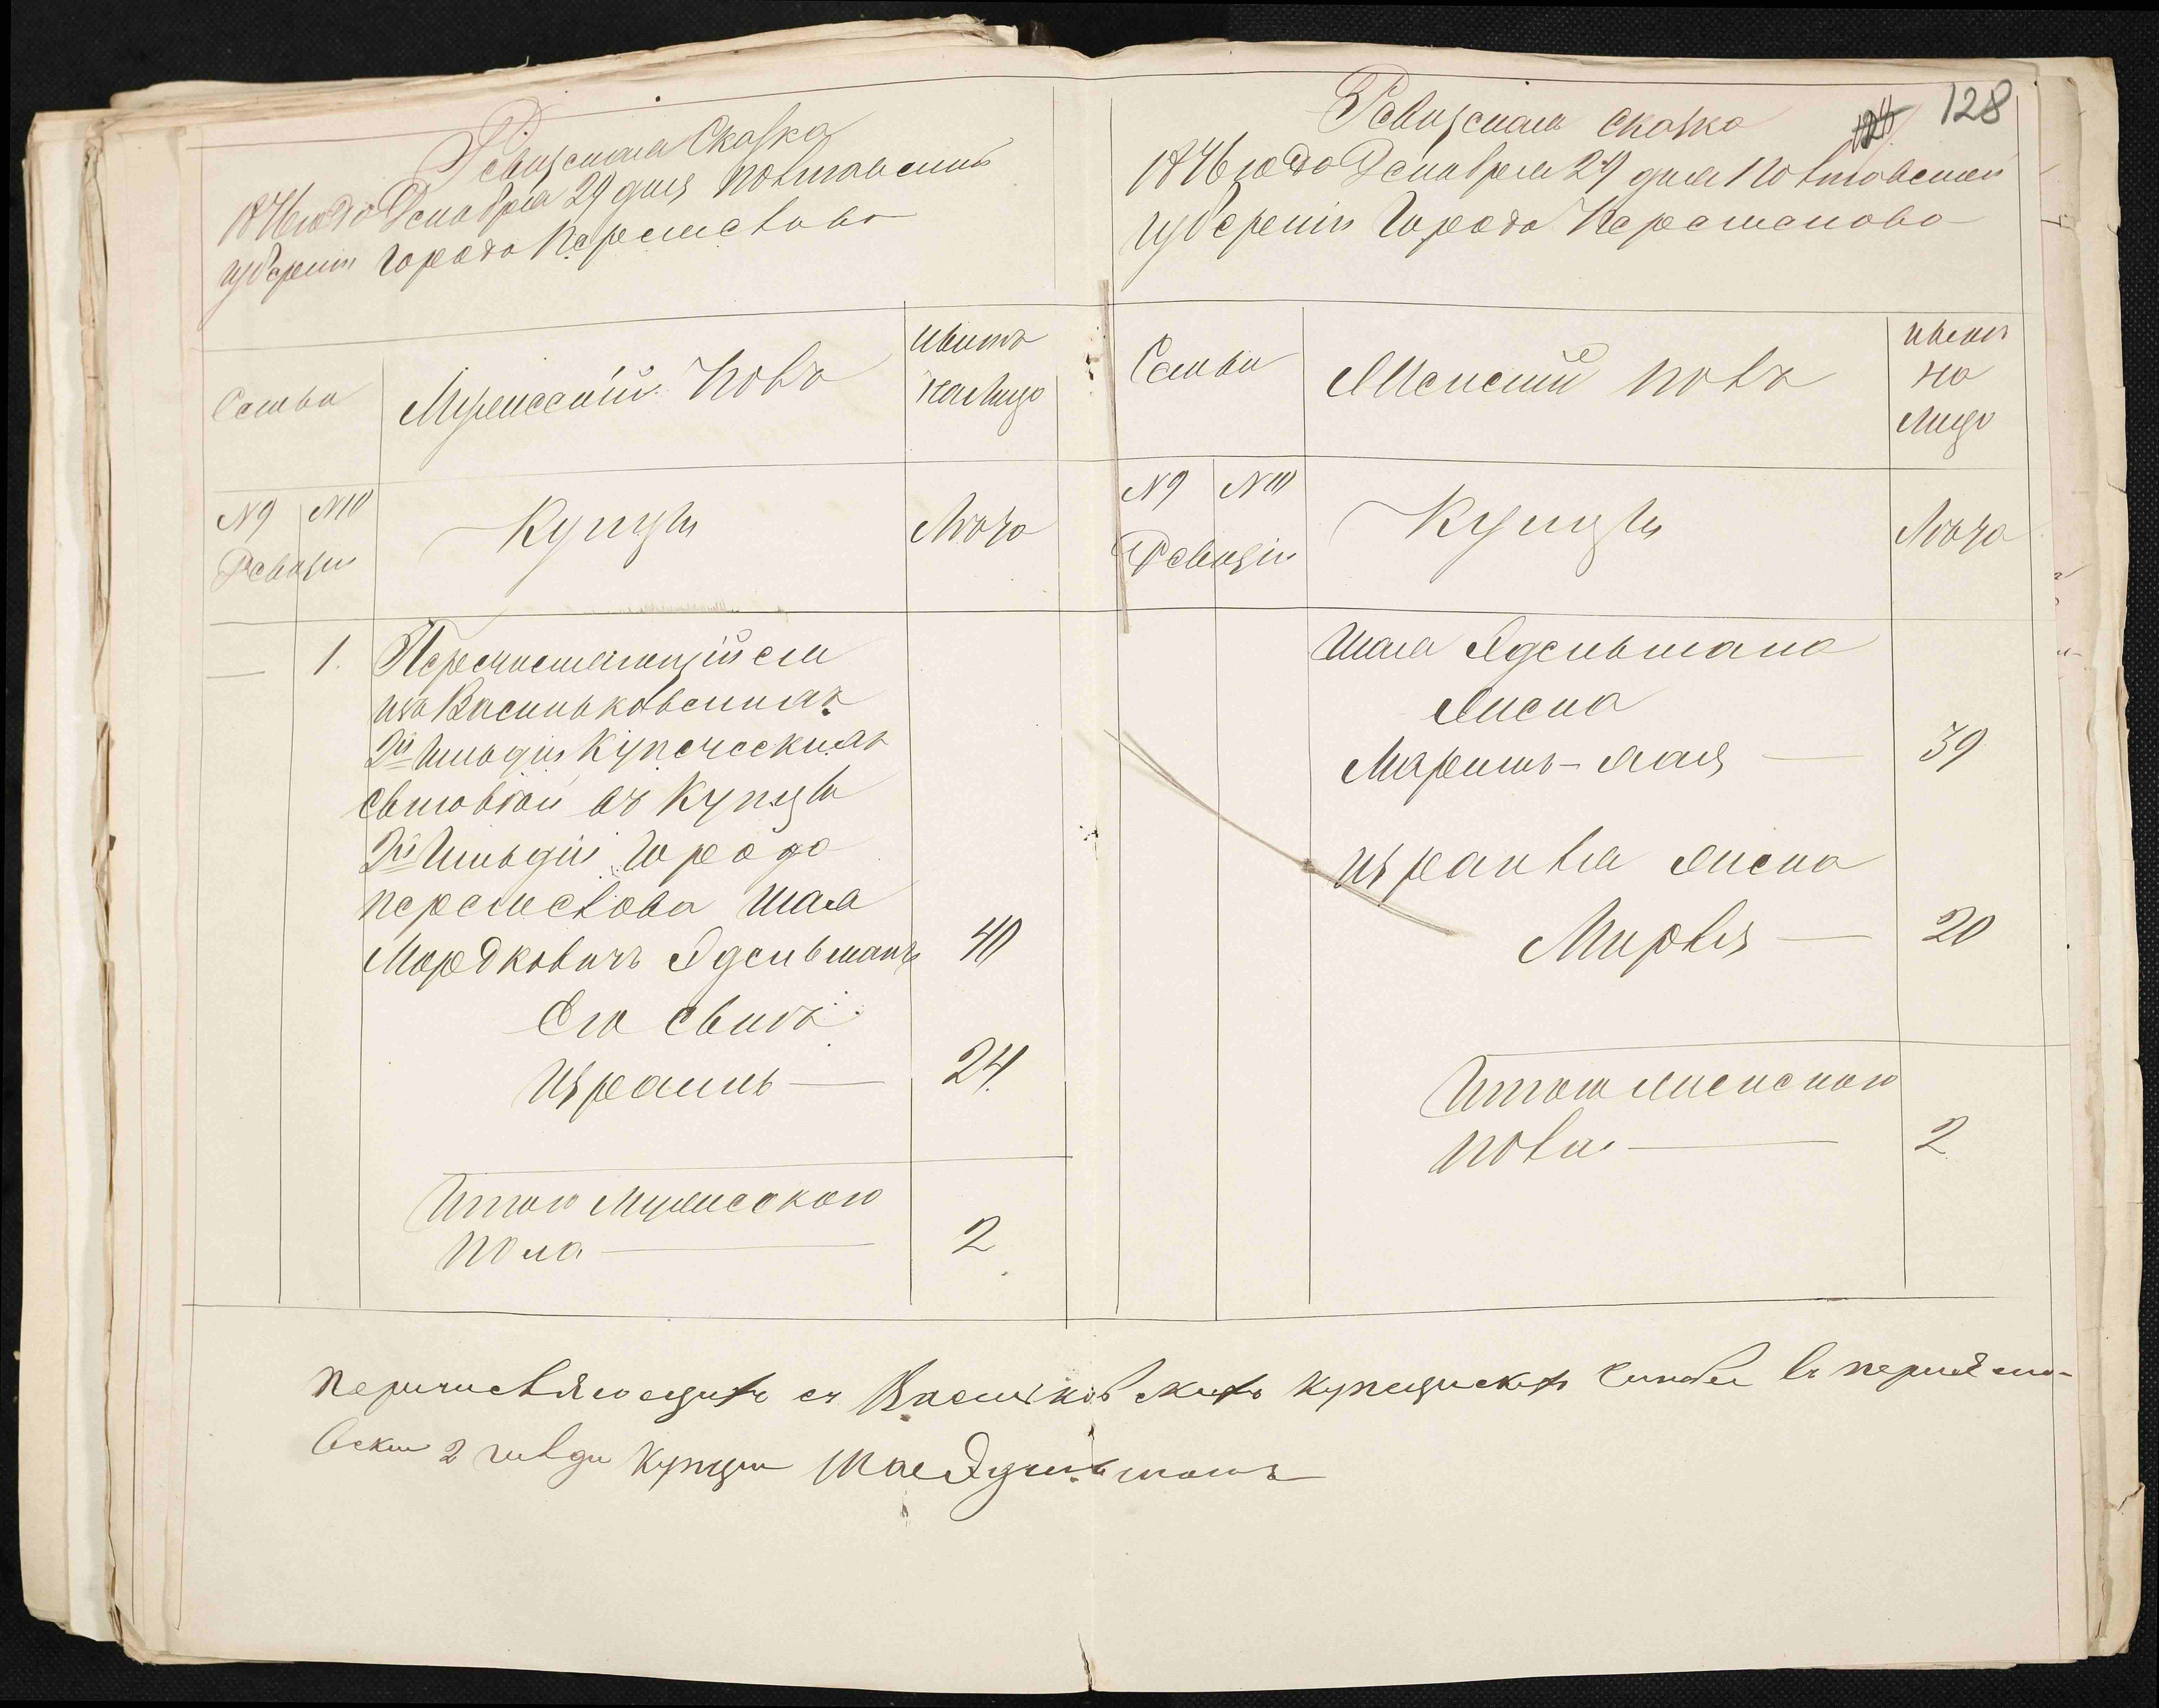 Ревизская Сказка
1876 года Декабря 29 дня Полтавской
губернiи Города Переяслова
Семьи
Мужескiй Полъ
Имеютъ
на лицо
N 9
N 10
Ревизiи
Купцы
Лета
1.
Перечисляющiйся
изъ Васильковскихъ
2й Гильдiи Купеческихъ
сыновей въ Купцы
2й Гильдiи Города
Переяслова Шая
Мордковичъ Эдельманъ 40
Его Сынъ
Израиль — 24
Итого Мужескаго
пола — 2
128
Ревизская Сказка
1876 года Декабря 29 дня Полтавской
губернiи Города Переяслова
Семьи
Женскiй полъ
Имеютъ
на
лицо
N 9
N 10
Ревизiи
Купцы
Лета
Шаи Эдельмана
Жена
Марьямъ-Хая — 39
Израиля жена
Мирля — 20
Итого женскаго
пола — 2
Перичисляющихъ съ Васильковскихъ купецискихъ въ перияс-
лвски 2 гилди Купци Шае Эдельманъ